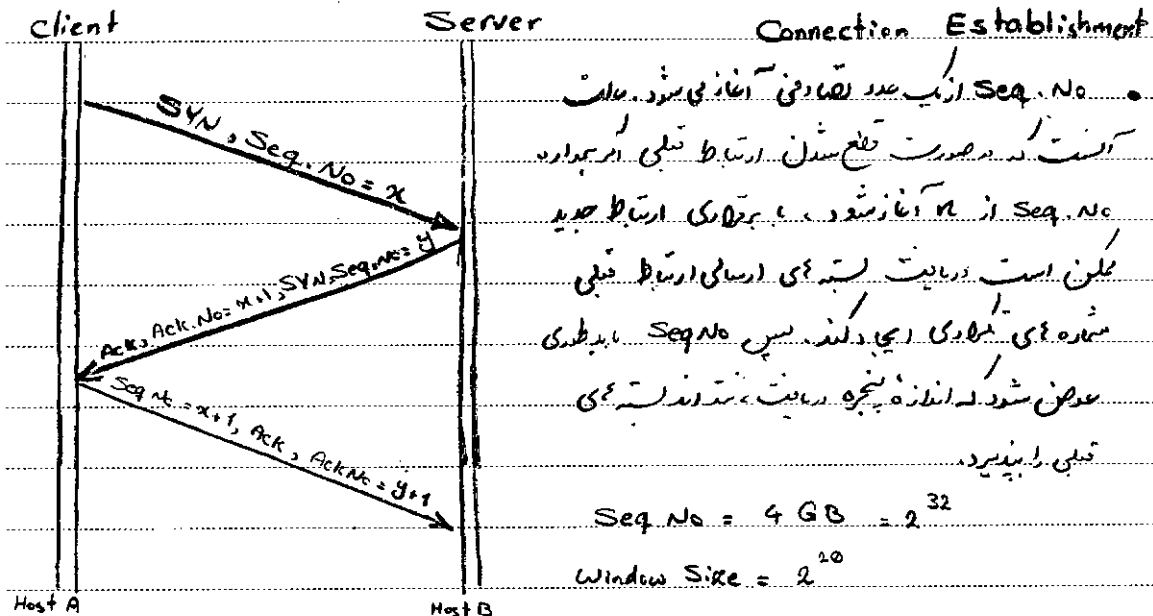 Client
Server
Connection Establishment
SYN, Seq. No = x
Ack, Ack.No = x+1, SYN, Seq.No = y
Seq No = x+1, Ack, Ack No = y+1
Host A
Host B
• Seq. No از یک عدد تصادفی آغاز می شود. علت
آنست که در صورت قطع شدن ارتباط قبلی اگر همواره
Seq. No از n آغاز شود، با برقراری ارتباط جدید
ممکن است دریافت بسته های ارسالی ارتباط قبلی
شماره های تکراری ایجاد کند. پس Seq No باید طوری
عوض شود که اندازۀ پنجره دریافت، نتواند بسته های
قبلی را بپذیرد.
Seq No = 4 GB = 2^32
Window Size = 2^20